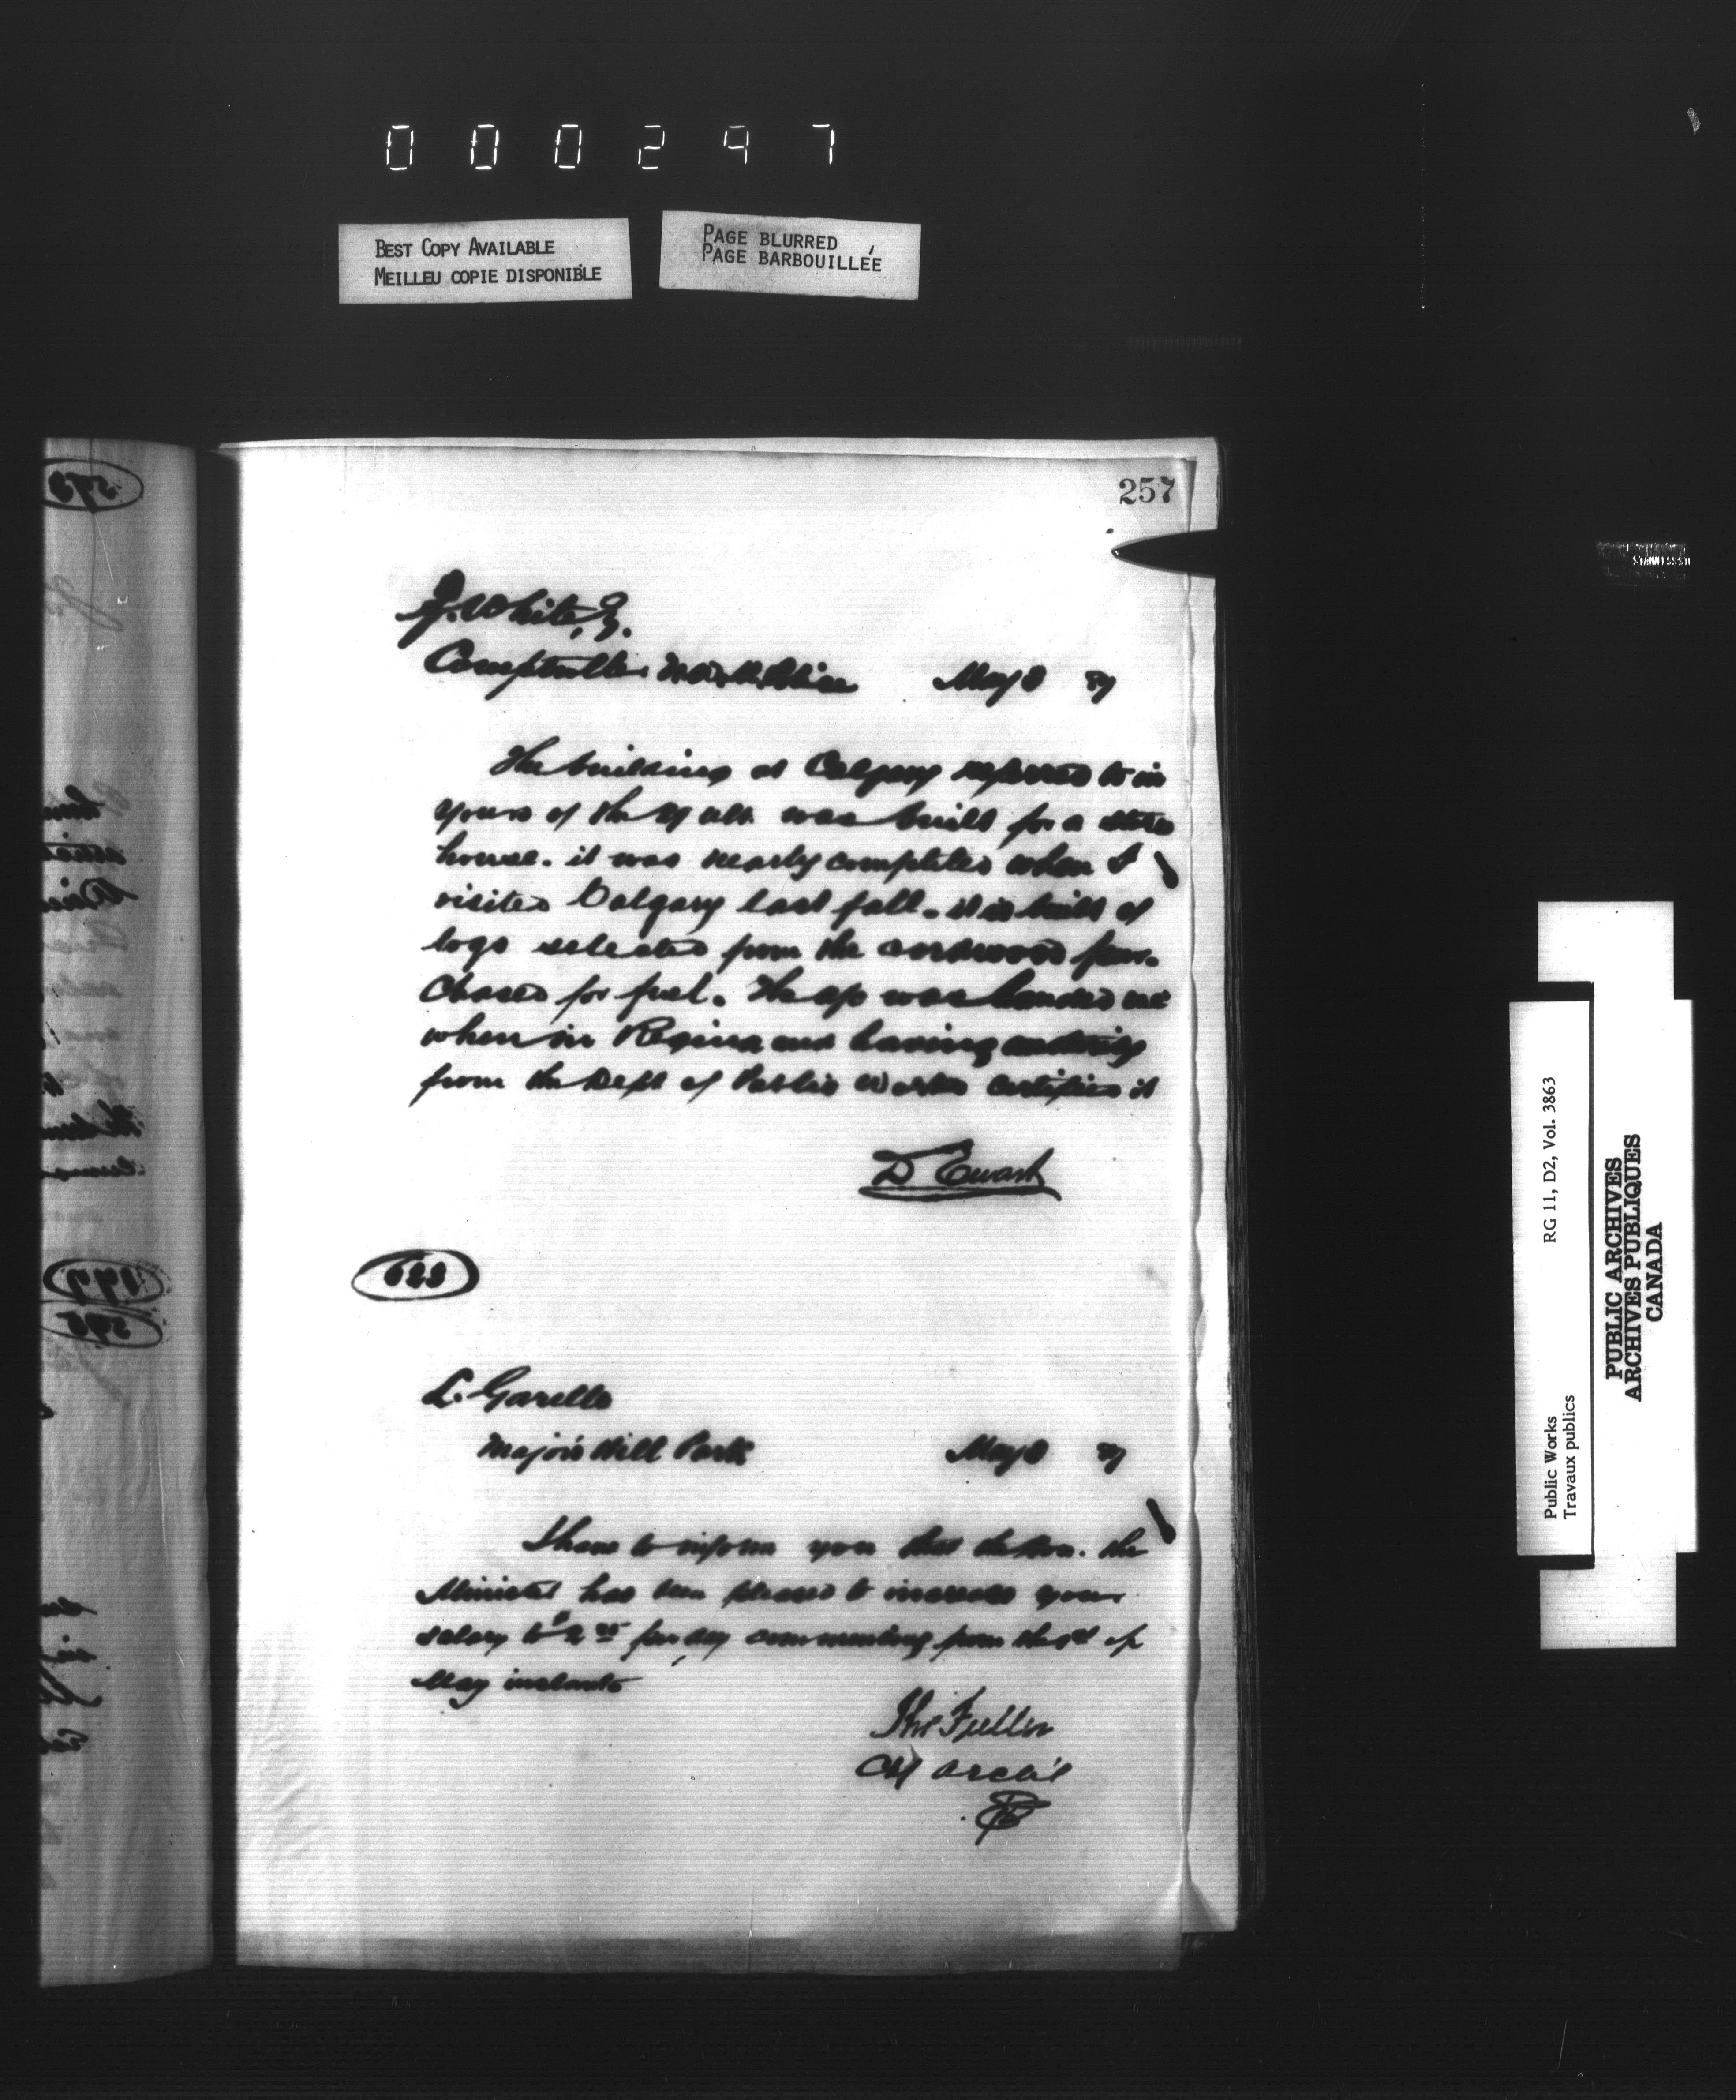 000297
BEST COPY AVAILABLE
MEILLEU COPIE DISPONIBLE
PAGE BLURRED
PAGE BARBOUILLÉE
257
White,
Comptroller N.W.M. Police May 8 87
The building at Calgary referred to in
yours of the ult. was built for a store
house. it was nearly completed when I
visited Calgary last fall. it is built of
logs selected from the cordwood pur-
chased for fuel. The a/c was handed me
when in Regina and having authority
from the Dept of Public Works certified it
D Ewart
623
L. Garella
Major's Hill Park May 8 87
I have to inform you that the Hon. the
Minister has been pleased to increase your
salary to $2 per day commencing from the 1st of
May instant
Thos Fuller
Chf Archt
Public Works
Travaux publics
RG 11, D2, Vol. 3863
PUBLIC ARCHIVES
ARCHIVES PUBLIQUES
CANADA